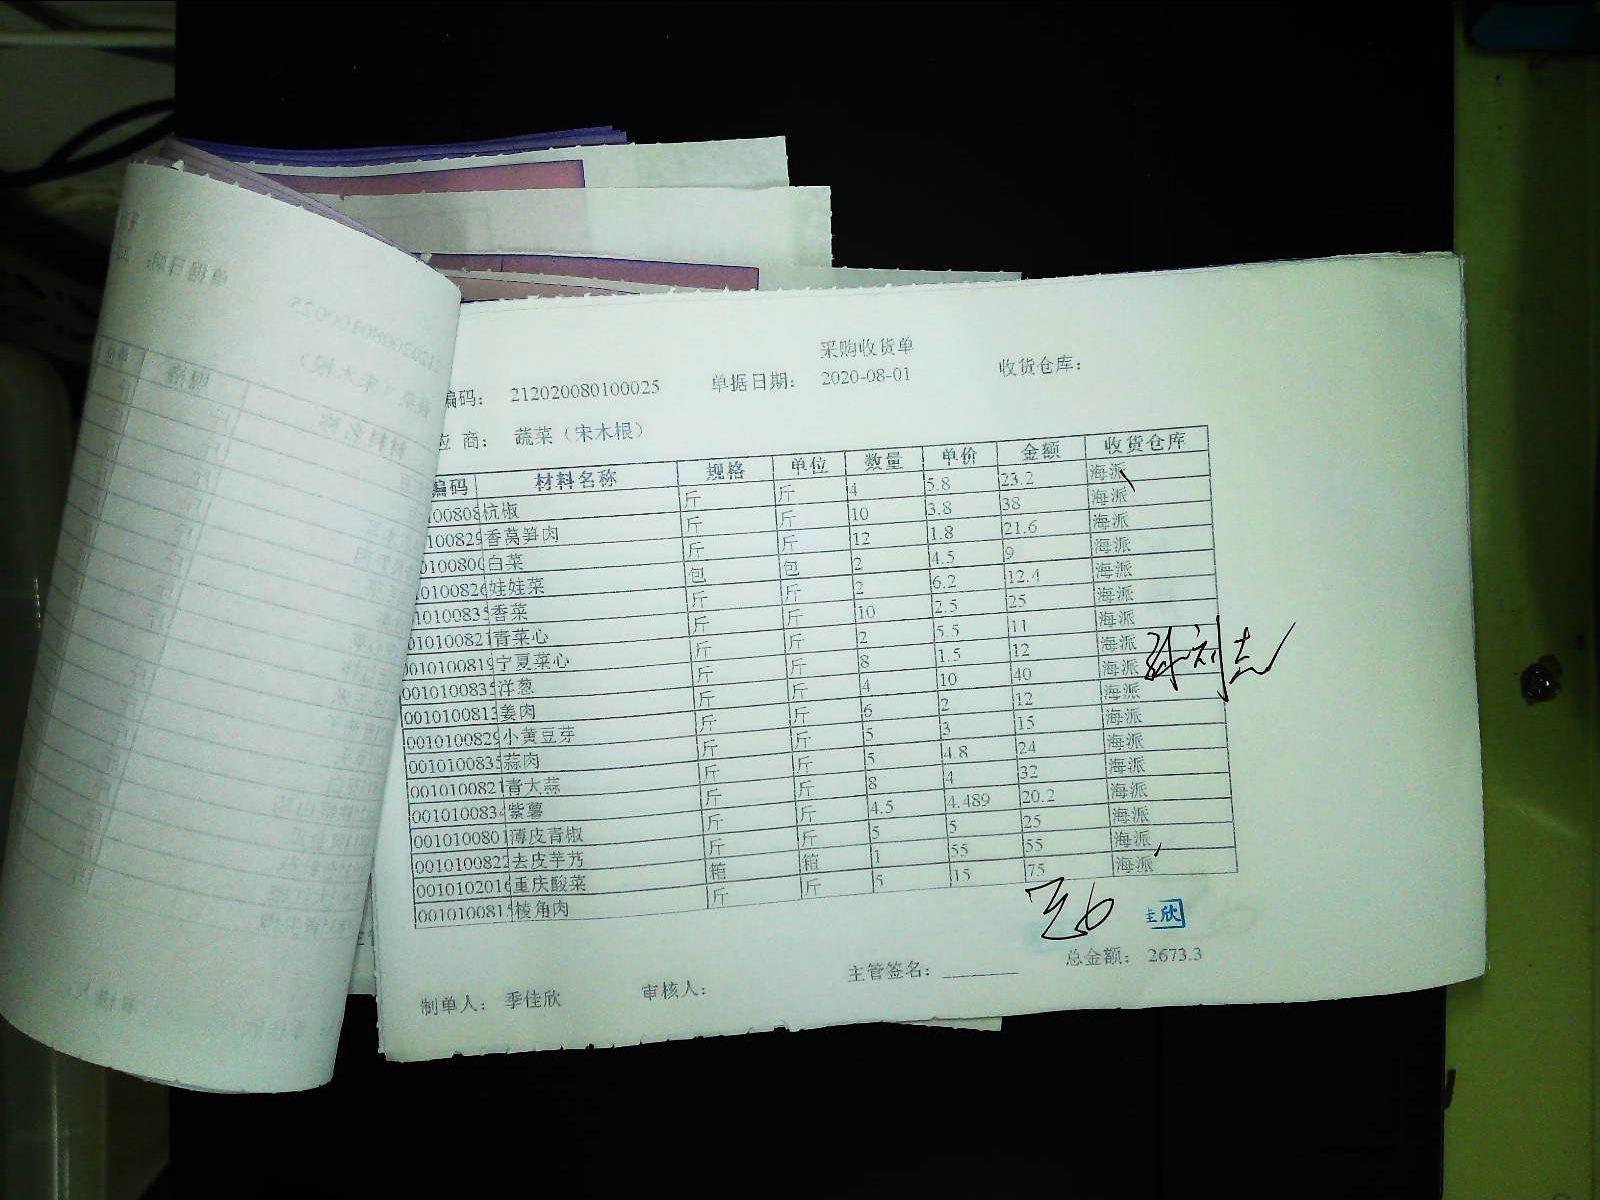 采购收货单
编码： 212020080100025 单据日期： 2020-08-01 收货仓库：
应 商： 蔬菜（宋木根）
编码 材料名称 规格 单位 数量 单价 金额 收货仓库
杭椒 斤 斤 4 5.8 23.2 海派
香莴笋肉 斤 斤 10 3.8 38 海派
白菜 斤 斤 12 1.8 21.6 海派
娃娃菜 包 包 2 4.5 9 海派
香菜 斤 斤 2 6.2 12.4 海派
青菜心 斤 斤 10 2.5 25 海派
宁夏菜心 斤 斤 2 5.5 11 海派
0010100835 洋葱 斤 斤 8 1.5 12 海派
0010100813 姜肉 斤 斤 4 10 40 海派
0010100829 小黄豆芽 斤 斤 6 2 12 海派
0010100835 蒜肉 斤 斤 5 3 15 海派
0010100821 青大蒜 斤 斤 5 4.8 24 海派
0010100834 紫薯 斤 斤 8 4 32 海派
0010100801 薄皮青椒 斤 斤 4.5 4.489 20.2 海派
0010100822 去皮芋艿 斤 斤 5 5 25 海派
0010102016 重庆酸菜 箱 箱 1 55 55 海派
0010100815 棱角肉 斤 斤 5 15 75 海派
制单人： 季佳欣 审核人： 主管签名： 总金额： 2673.3